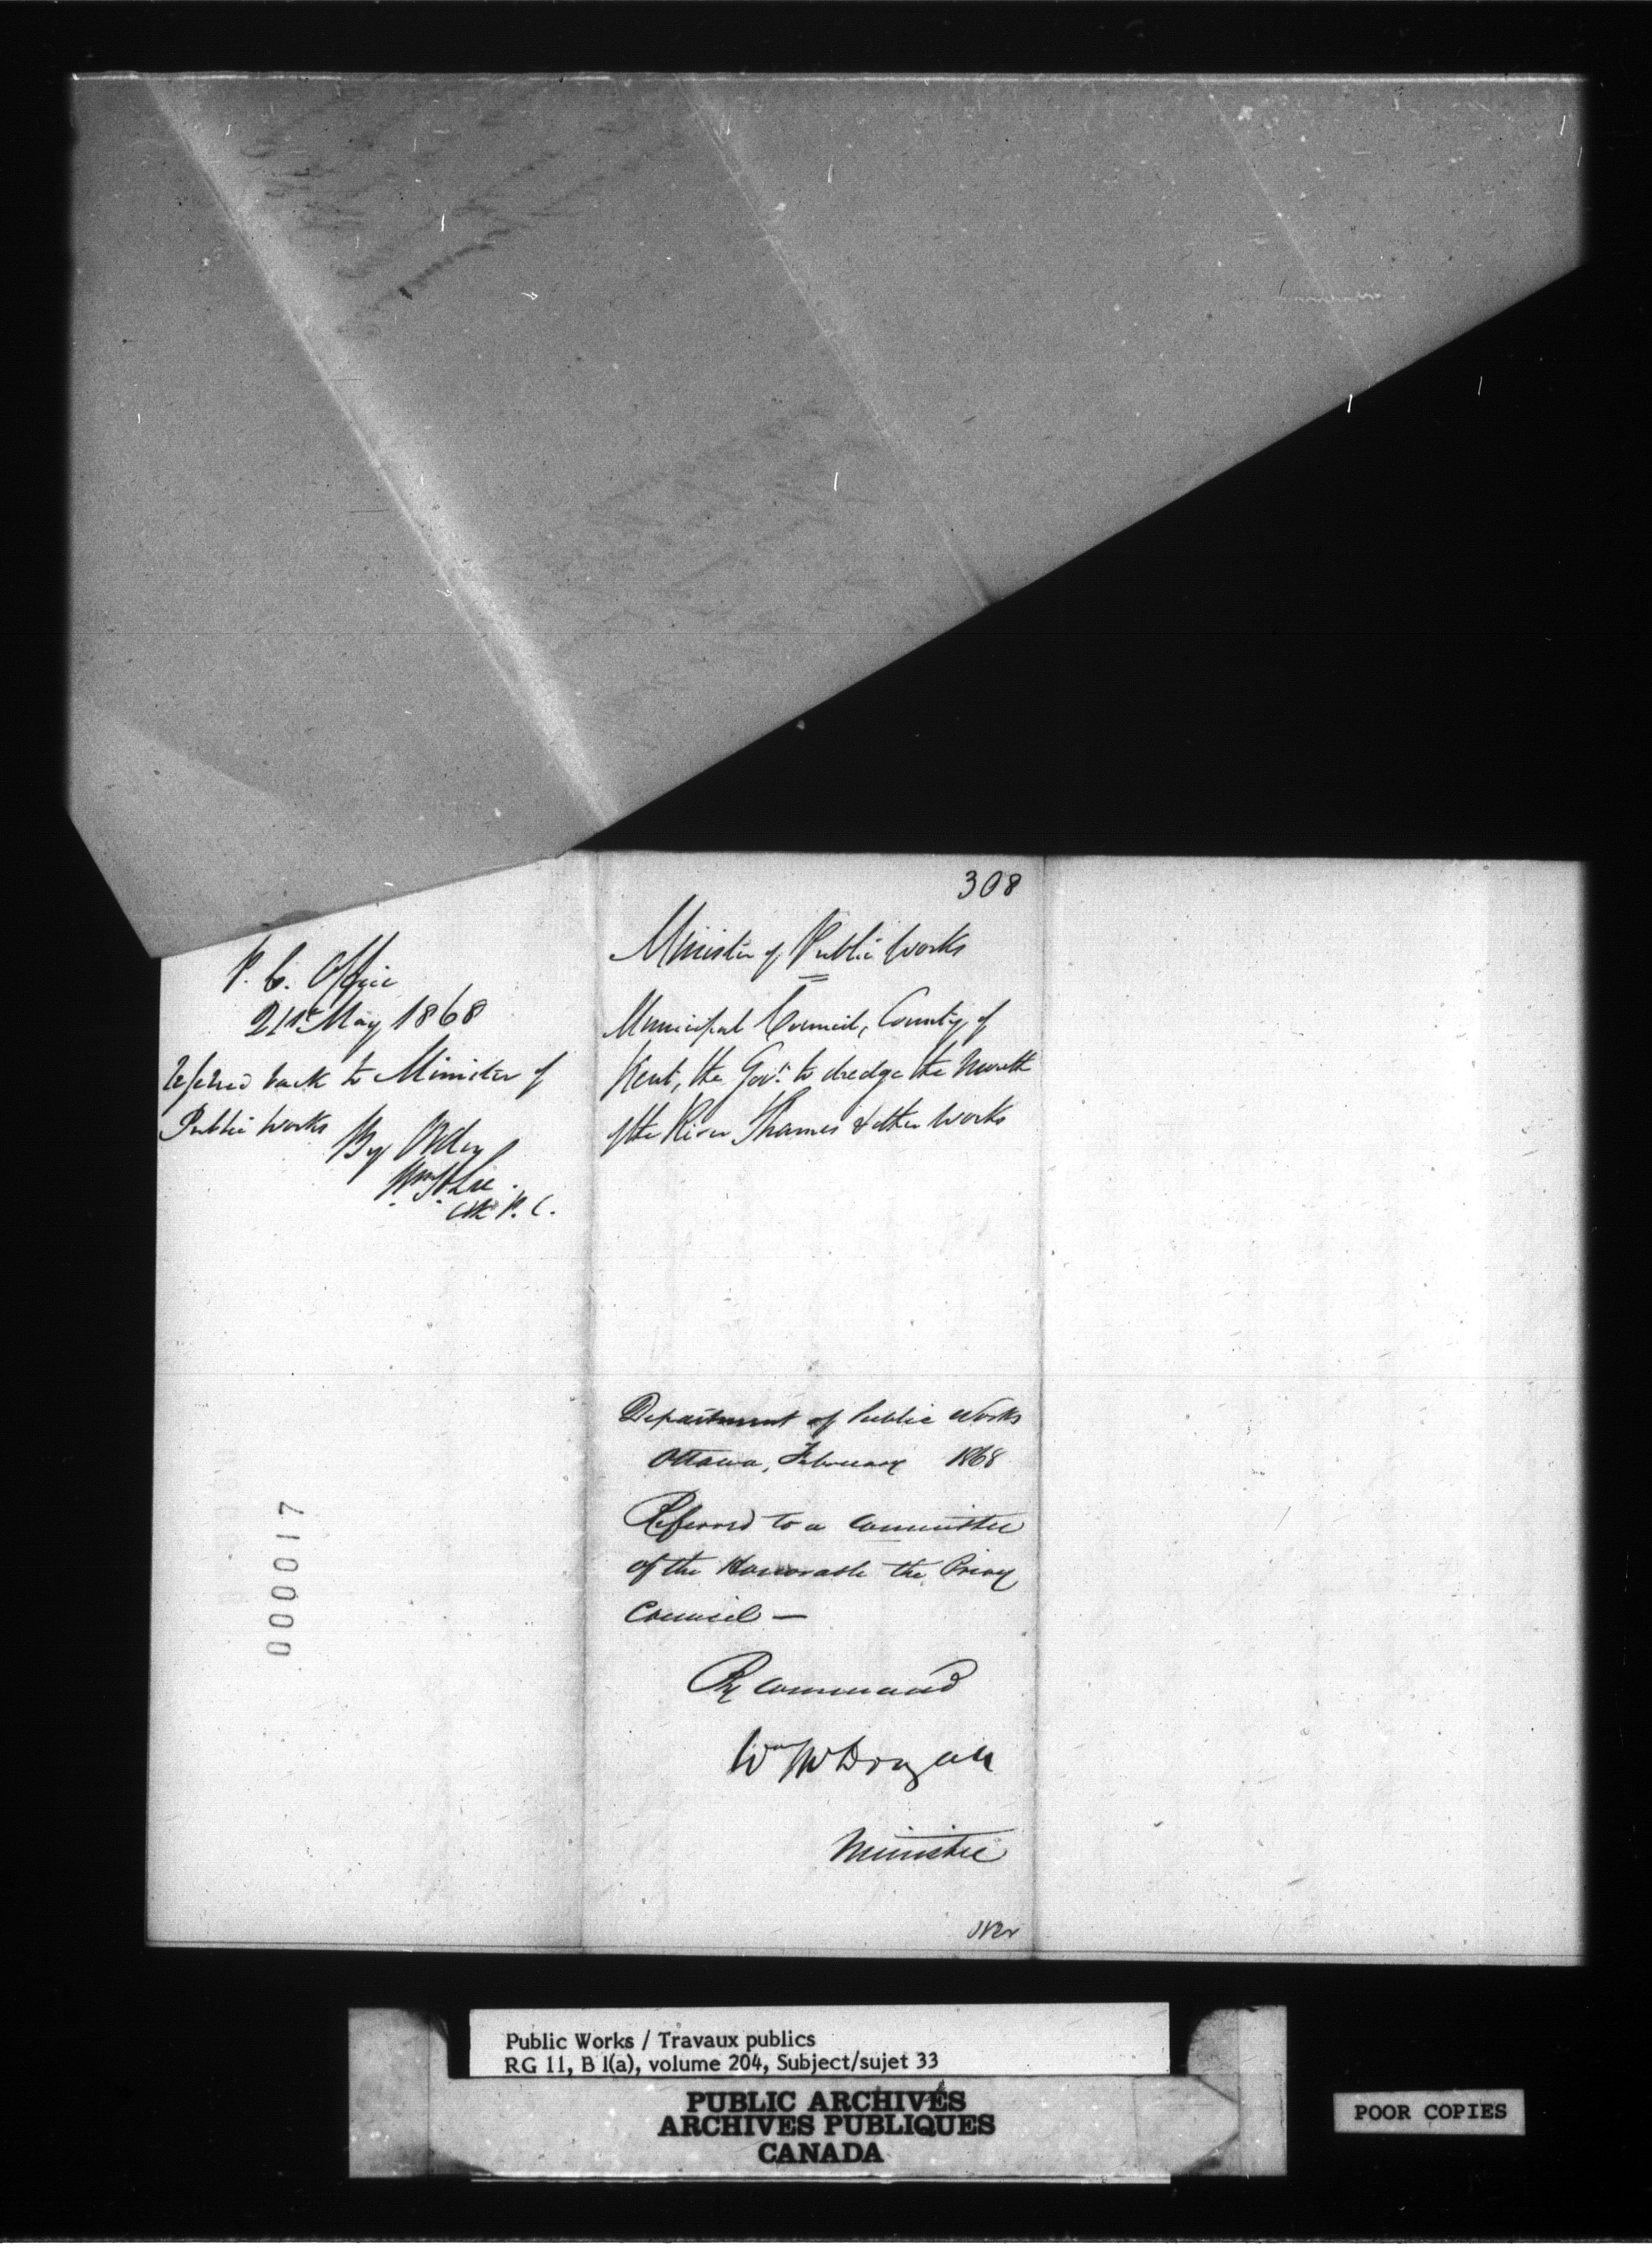 P. C. Office
21st May 1868
Referred back to Minister of
Public Works
By Order
Wm H Lee.
Clk P. C.
308
Minister of Public Works
Municipal Council, County of
Kent, the Govt. to dredge the Mouth
of the River Thames & other works
Department of Public Works
Ottawa, February 1868
Referred to a Committee
of the Honorable the Privy
Council —
By Command
Wm McDougall
Minister
000017
Public Works / Travaux publics
RG 11, B 1(a), volume 204, Subject/sujet 33
PUBLIC ARCHIVES
ARCHIVES PUBLIQUES
CANADA
POOR COPIES